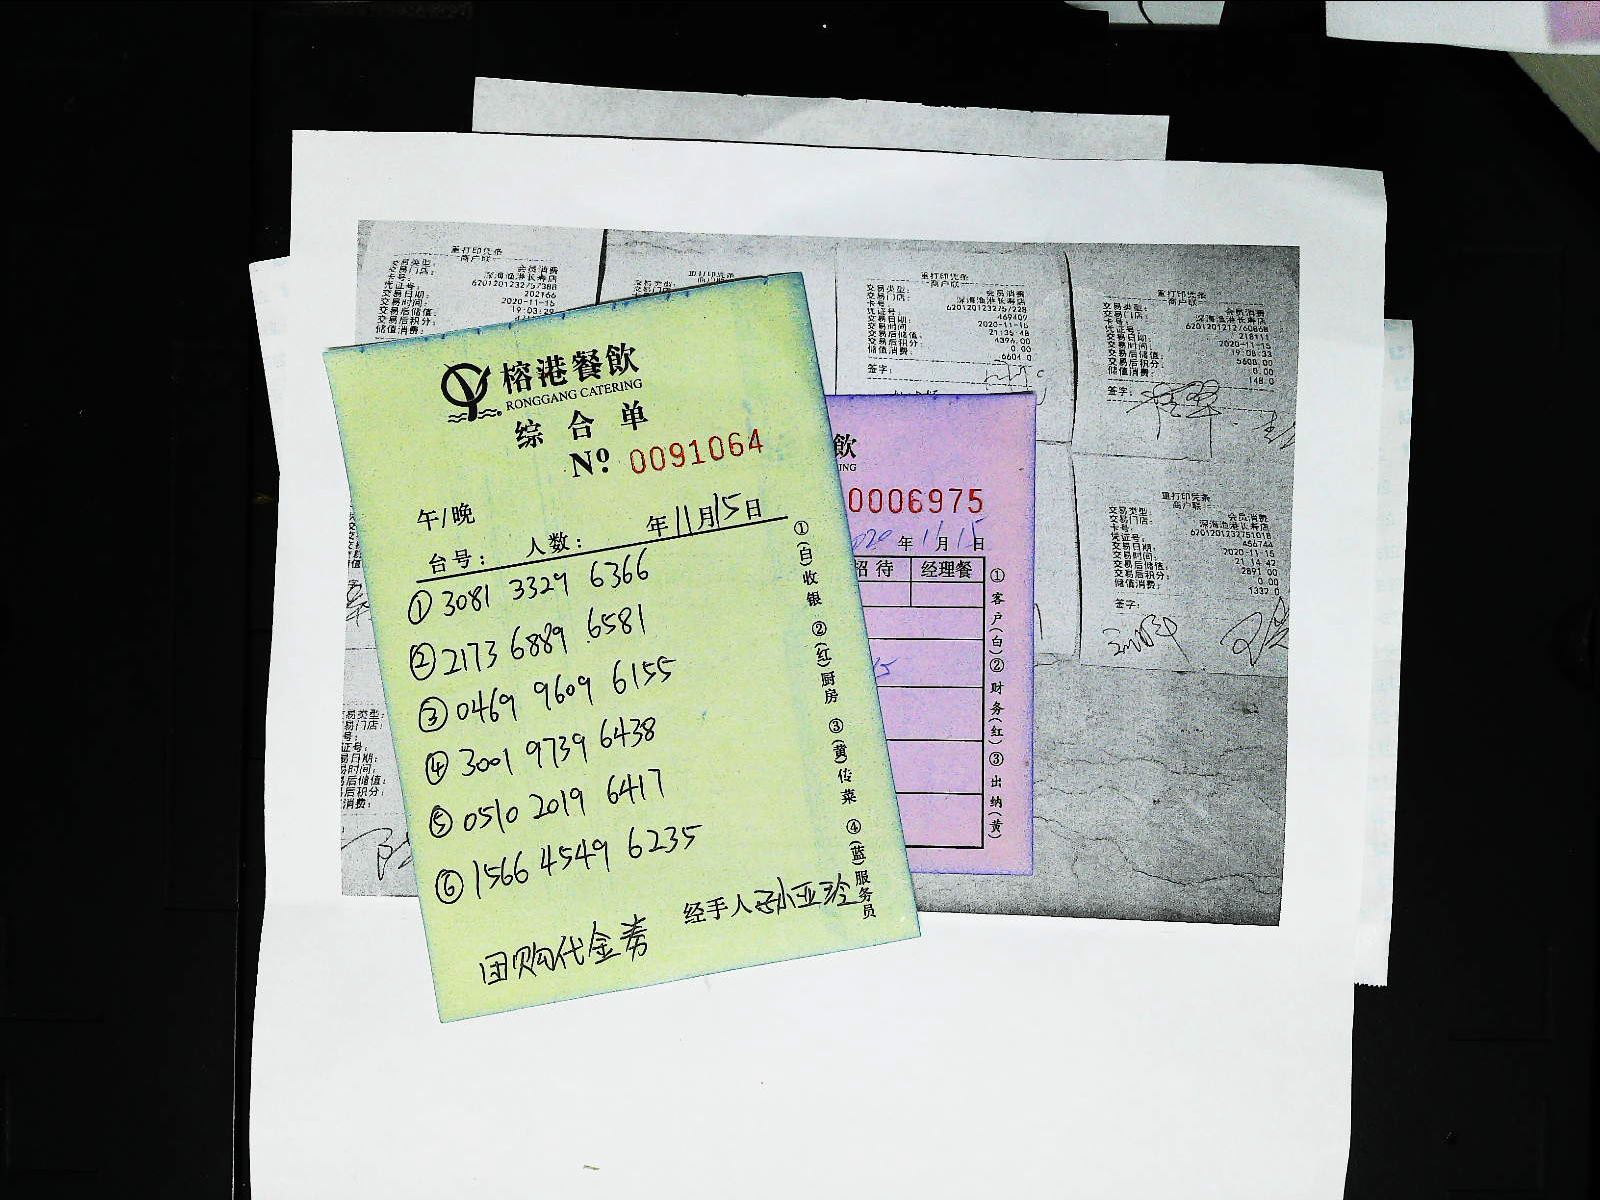 榕港餐飲
RONGGANG CATERING
综合单
Nº 0091064
午/晚
年11月15日
台号： 人数：
① 3081 3329 6366
② 2173 6889 6581
③ 0469 9609 6155
④ 3001 9739 6438
⑤ 0510 2019 6417
⑥ 1566 4549 6235
团购代金券
经手人 孙亚玲
①(白)收银 ②(红)厨房 ③(黄)传菜 ④(蓝)服务员
飲
ING
0006975
2020年11月15日
招待 经理餐
①客户(白)②财务(红)③出纳(黄)
重打印凭条
商户联
交易类型： 会员消费
交易门店： 深海渔港长寿店
卡号： 6201201232757388
凭证号： 202166
交易日期： 2020-11-15
交易时间： 19:03:29
交易后储值：
交易后积分：
储值消费：
重打印凭条
交易类型：
重打印凭条
商户联
交易类型： 会员消费
交易门店： 深海渔港长寿店
卡号： 6201201232757228
凭证号： 469409
交易日期： 2020-11-15
交易时间： 21:35:48
交易后储值： 4396.00
交易后积分： 0.00
储值消费： 6604.0
签字：
重打印凭条
商户联
交易类型： 会员消费
交易门店： 深海渔港长寿店
卡号： 6201201212760868
凭证号： 218111
交易日期： 2020-11-15
交易时间： 19:08:33
交易后储值： 5608.00
交易后积分： 0.00
储值消费： 148.0
签字：
重打印凭条
商户联
交易类型： 会员消费
交易门店： 深海渔港长寿店
卡号： 6201201232751018
凭证号： 456744
交易日期： 2020-11-15
交易时间： 21:14:42
交易后储值： 2891.00
交易后积分： 0.00
储值消费： 1332.0
签字：
易类型：
易门店：
号：
证号：
易日期：
易时间：
易后储值：
易后积分：
消费：